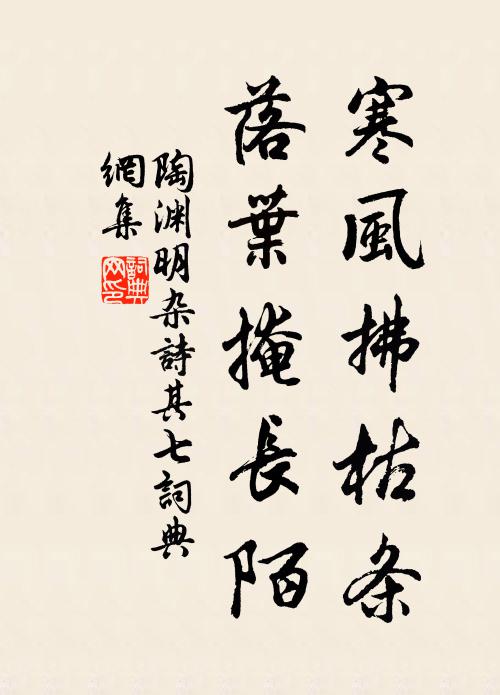 寒風拂枯条
落葉掩長陌
陶渊明杂詩其七詞典
網集
詞典網印